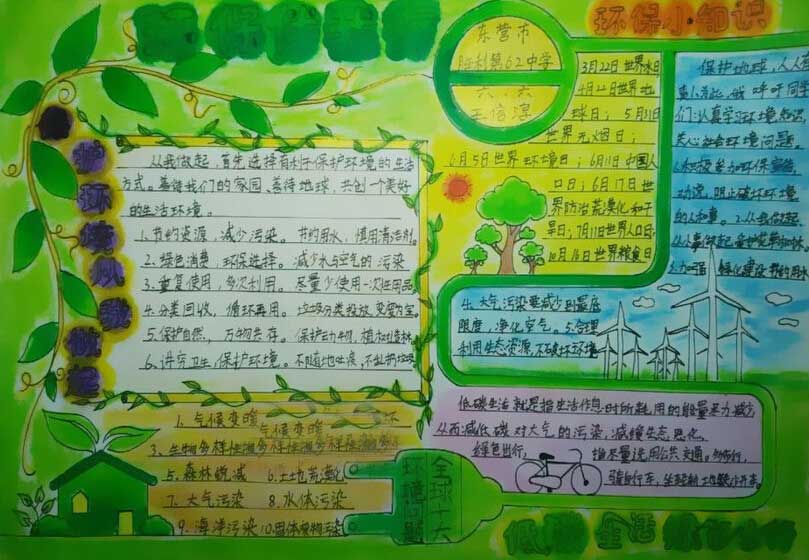 东营市
胜利第62中学
王信淳
环保小知识
护环境从我做起
从我做起,首先选择有利于保护环境的生活
方式。善待我们的家园、善待地球,共创一个美好
的生活环境。
1.节约资源,减少污染。节约用水,慎用清洁剂。
2.绿色消费,环保选择。减少水与空气的污染
3.重复使用,多次利用。尽量少使用一次性用品
4.分类回收,循环再用。垃圾分类投放,变废为宝。
5.保护自然,万物共存。保护动物,植树造林
6.讲究卫生,保护环境。不随地吐痰,不乱扔垃圾
3月22日世界水日
4月22日世界地
球日;5月31日
世界无烟日;
6月5日世界环境日;6月11日中国人
口日;6月17日世
界防治荒漠化和干
旱日;7月11日世界人口日;
10月16日世界粮食日
保护地球,人人有
责!为此,我呼吁同学
们:认真学习环境知识,
关心社会环境问题,
阻止破坏环境
2.从我做起,
4.大气污染要减少到最底
限度,净化空气。5.合理
利用生态资源,不破坏环境
低碳生活就是指生活作息时所耗用的能量要尽力减少
从而减低碳对大气的污染,减缓生态恶化,
绿色出行,
指尽量选用公共交通。
骑自行车,
1.气候变暖
3.生物多样性
5.森林锐减 6.土地荒漠化
7.大气污染 8.水体污染
9.海洋污染 10.固体废物污染
全球十大
环境问题
低碳生活 绿色出行